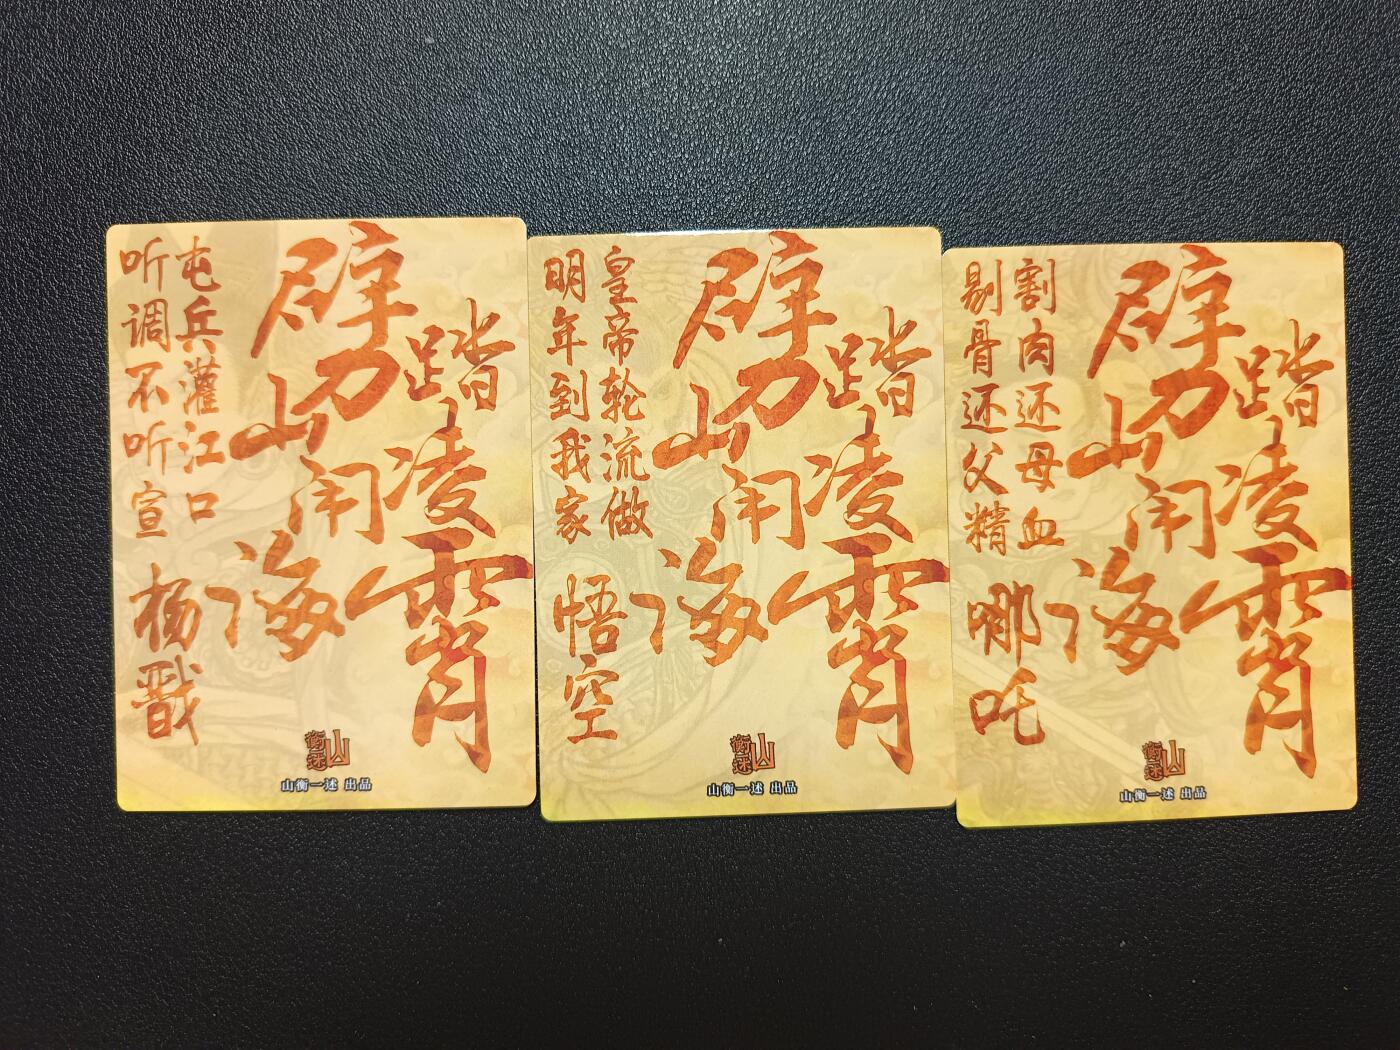 踏凌霄
劈山闹海
屯兵灌江口
听调不听宣
杨戬
山衡述
山衡一述 出品
踏凌霄
劈山闹海
皇帝轮流做
明年到我家
悟空
山衡述
山衡一述 出品
踏凌霄
劈山闹海
割肉还母血
剔骨还父精
哪吒
山衡述
山衡一述 出品